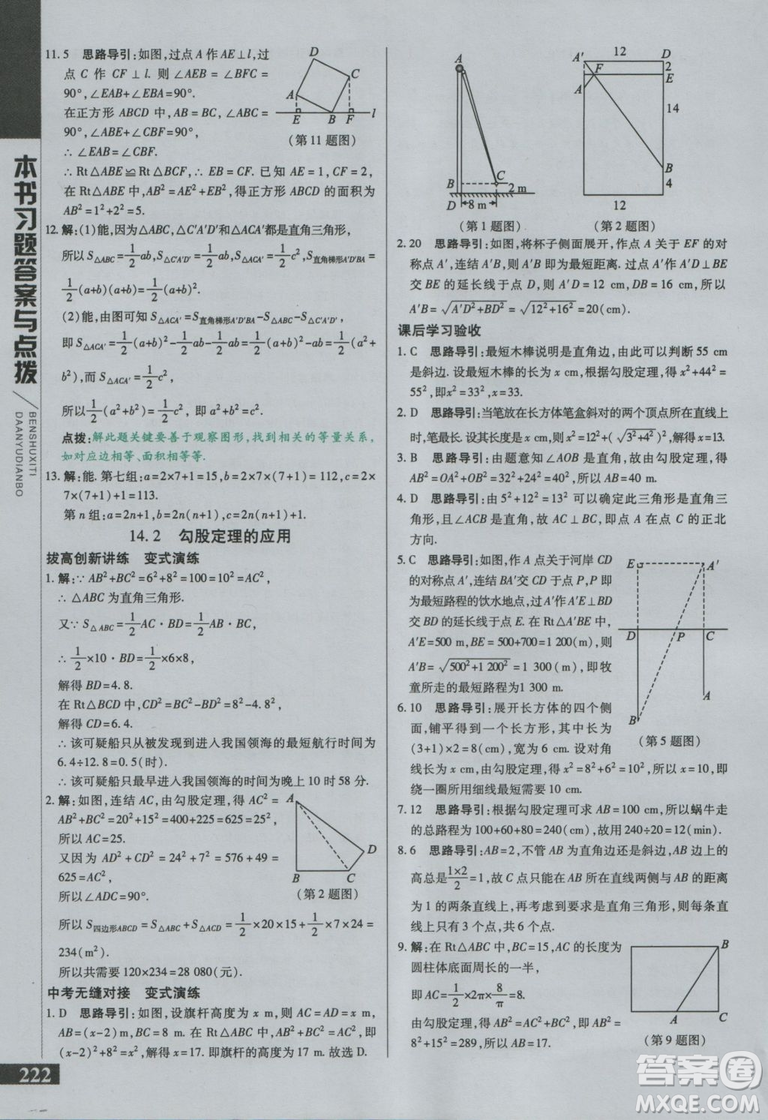 本书习题答案与点拨
BENSHUXITI
DAANYUDIANBO
11.5 思路导引:如图,过点 A 作 AE⊥l,过
点 C 作 CF⊥l. 则 ∠AEB = ∠CFB =
90°,∠EAB+∠EBA=90°.
在正方形 ABCD 中,AB=BC,∠ABC=
90°,∠ABE+∠CBF=90°.
∴ ∠EAB=∠CBF.
∴ Rt△ABE≌Rt△BCF. ∴ BE=CF. 已知 AE=1,CF=2,
在 Rt△ABE 中,AB²=AE²+BE²,得正方形 ABCD 的面积为
AB²=1²+2²=5.
D
C
A
E
B
F
l
(第 11 题图)
12.解:(1)能,因为△ABC,△C'A'D'和△ACA'都是直角三角形,
所以 S△ABC=1/2ab,S△C'A'D'=1/2ab,S直角梯形A'D'BA=
1/2(a+b)(a+b)=1/2(a+b)².
(2)能,由图可知 S△ACA'=S直角梯形A'D'BA-S△ABC-S△C'A'D',
即 S△ACA'=1/2(a+b)²-1/2ab-1/2ab=1/2(a+b)²-ab=1/2(a²+
b²),而 S△ACA'=1/2c².
所以1/2(a²+b²)=1/2c². 即 a²+b²=c².
点拨:解此题关键要善于观察图形,找到相关的等量关系,
如对应边相等、面积相等等.
13.解:能. 第七组:a=2×7+1=15,b=2×7(7+1)=112,c=2×
7×(7+1)+1=113.
第 n 组:a=2n+1,b=2n(n+1),c=2n(n+1)+1.
14.2 勾股定理的应用
拔高创新讲练 变式演练
1.解:∵ AB²+BC²=6²+8²=100=10²=AC²,
∴ △ABC 为直角三角形.
又∵ S△ABC=1/2AC·BD=1/2AB·BC,
∴ 1/2×10×BD=1/2×6×8,
解得 BD=4.8.
在 Rt△BCD 中,CD²=BC²-BD²=8²-4.8²,
解得 CD=6.4.
∴ 该可疑船只从被发现到进入我国领海的最短航行时间为
6.4÷12.8=0.5(时).
∴ 该可疑船只最早进入我国领海的时间为晚上 10 时 58 分.
2.解:如图,连结 AC,由勾股定理,得 AC²=
AB²+BC²=20²+15²=400+225=625.
所以 AC=25.
又因为 AD²+CD²=24²+7²=576+49=
625=AC²,
所以∠ADC=90°.
A
D
B
C
(第 2 题图)
所以 S四边形ABCD=S△ABC+S△ADC=1/2×20×15+1/2×7×24=
234(m²).
所以共需要 120×234=28 080(元).
中考无缝对接 变式演练
1.D 思路导引:如图,设旗杆高度为 x m,则 AC=AD=x m,
AB=(x-2)m,BC=8 m. 在 Rt△ABC 中,AB²+BC²=AC²,即
(x-2)²+8²=x²,解得 x=17,即旗杆的高度为 17 m. 故选 D.
222
A
B
C
D
2 m
8 m
(第 1 题图)
A'
F
A
12
2
E
14
B
4
12
(第 2 题图)
2.20 思路导引:如图,将杯子侧面展开,作点 A 关于 EF 的对
称点 A',连结 A'B,则 A'B 即为最短距离. 过点 A'作 A'D⊥BE
交 BE 的延长线于点 D,则 A'D=12 cm,DB=16 cm,所以
A'B=√(A'D²+BD²)=√(12²+16²)=20(cm).
课后学习验收
1.C 思路导引:最短木棒说明是直角边,由此可以判断 55 cm
是斜边. 设最短的木棒长为 x cm,根据勾股定理,得 x²+44²=
55²,即 x²=33²,x=33.
2.D 思路导引:当笔放在长方体笔盒斜对的两个顶点所在直线上
时,笔最长. 设笔长 x cm,则有 x²=12²+(√(3²+4²))². 所以 x=13.
3.B 思路导引:由题意知∠AOB 是直角,故由勾股定理,得
AB²=OA²+OB²=32²+24²=1 600,所以 AB=40 m.
4.D 思路导引:由 5²+12²=13² 可以确定此三角形是直角三
角形,又因为 A 在 B 的正东方向,所以 C 在 B 的正北
方向.
5.C 思路导引:如图,作点 A 关于河岸 CD
的对称点 A',连结 A'B 交 CD 于点 P,P 即
为最短路程的饮水地点,过 A'作 A'E⊥BD
交 BD 的延长线于点 E,在 Rt△A'EB 中,
A'E=500 m,BE=500+700=1 200(m),所
以 A'B=√(500²+1 200²)=1 300(m),即牧
童所走的最短路程为1 300 m.
E
A'
D
P
C
A
B
(第 5 题图)
6.10 思路导引:展开长方体的四个侧
面,铺平得到一个长方形,长方形的长为
(3+1)×2=8 cm,宽为 6 cm. 设对角
线长为 x cm. 由勾股定理,得 x²=8²+6²=10²,所以 x=10,即
绕一圈所用细线最短需要 10 cm.
7.12 思路导引:根据勾股定理可求 AB=100 cm,所以蜗牛走
的总路程为 100+60+80=240(cm),所以需用 240÷20=12(min).
8.6 思路导引:AB=2,不管 AB 为直角边还是斜边,AB 上的
高总是(1×2)/2=1,故 C 点只能在 AB 所在直线两侧与 AB 相距
1 的两条直线上,再考虑到要求是直角三角形,则每条直
线上只有 3 个点符合条件,共 6 个点.
9.解:在 Rt△ABC 中,BC=15,AC 的长度为
圆柱体底面周长的一半,
即 AC=1/2×2π×8/π=8.
由勾股定理,得 AB²=AC²+BC²=
8²+15²=289,所以 AB=17.
B
A
C
(第 9 题图)
答案圈
MXQE.COM